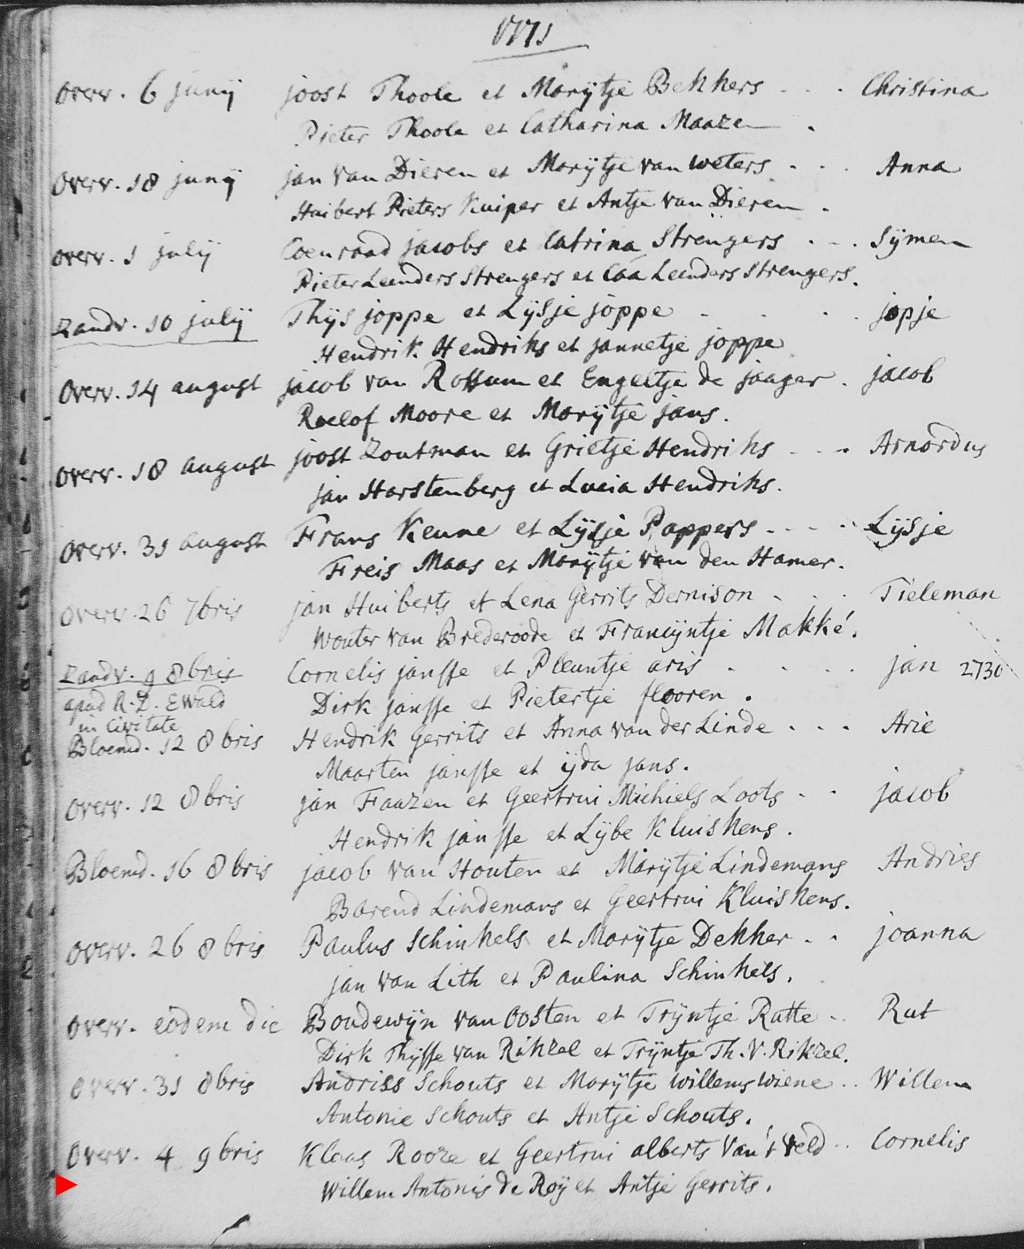 1771
Overv. 6 junij joost Thoole et Marijtje Bekkers - - - Christina
Pieter Thoole et Catharina Maazen .
Overv. 18 junij jan van Dieren et Marijtje van weters - - - Anna
Huibert Pieters Kuiper et Antje van Dieren .
overv. 1 julij Coenraad jacobs et Catrina Strengers - - - Sijmen
Pieter Leenders Strengers et Caa Leenders Strengers.
Zandv. 10 julij Thijs joppe et Lijsje joppe - - - - jopje
Hendrik Hendriks et jannetje joppe
Overv. 14 august jacob van Rossum et Engeltje de jaager . jacob
Roelof Moore et Marijtje jans.
Overv. 18 august joost Zoutman et Grietje Hendriks - - - Arnordus
jan Harstenberg et Lucia Hendriks.
Overv. 31 august Frans Keune et Lijsje Pappers - - - - Lijsje
Freis Maas et Marijtje van den Hamer.
Overv. 26 7bris jan Huiberts et Lena Gerrits Dernison - - - Tieleman
Wouter van Brederoode et Francijntje Makké.
Zandv. 9 8bris Cornelis jansse et Pleuntje aris - - - - jan 2730
apud R. D. Ewald Dirk jansse et Pietertje flooren .
in Civitate
Bloemd. 12 8bris Hendrik Gerrits et Anna van der Linde - - - Arie
Maarten jansse et ijda jans.
Overv. 12 8bris jan Faazen et Geertrui Michiels Loots - - jacob
Hendrik jansse et Lijbe Kluiskens .
Bloemd. 16 8bris jacob van Houten et Marijtje Lindemans Andries
Barend Lindemans et Geertrui Kluiskens.
Overv. 26 8bris Paulus Schinkels et Marijtje Dekker - - joanna
jan van Lith et Paulina Schinkels.
Overv. eodem die Boudewijn van Oosten et Trijntje Rutte - - Rut
Dirk Thijsse van Rikzel et Trijntje Th. V. Rikzel.
Overv. 31 8bris Andriss Schouts et Marijtje willems wiene - - Willem
Antonie Schouts et Antje Schouts.
Overv. 4 9bris Klaas Rooze et Geertrui alberts Van't Veld - - Cornelis
Willem Antonis de Roij et Antje Gerrits.